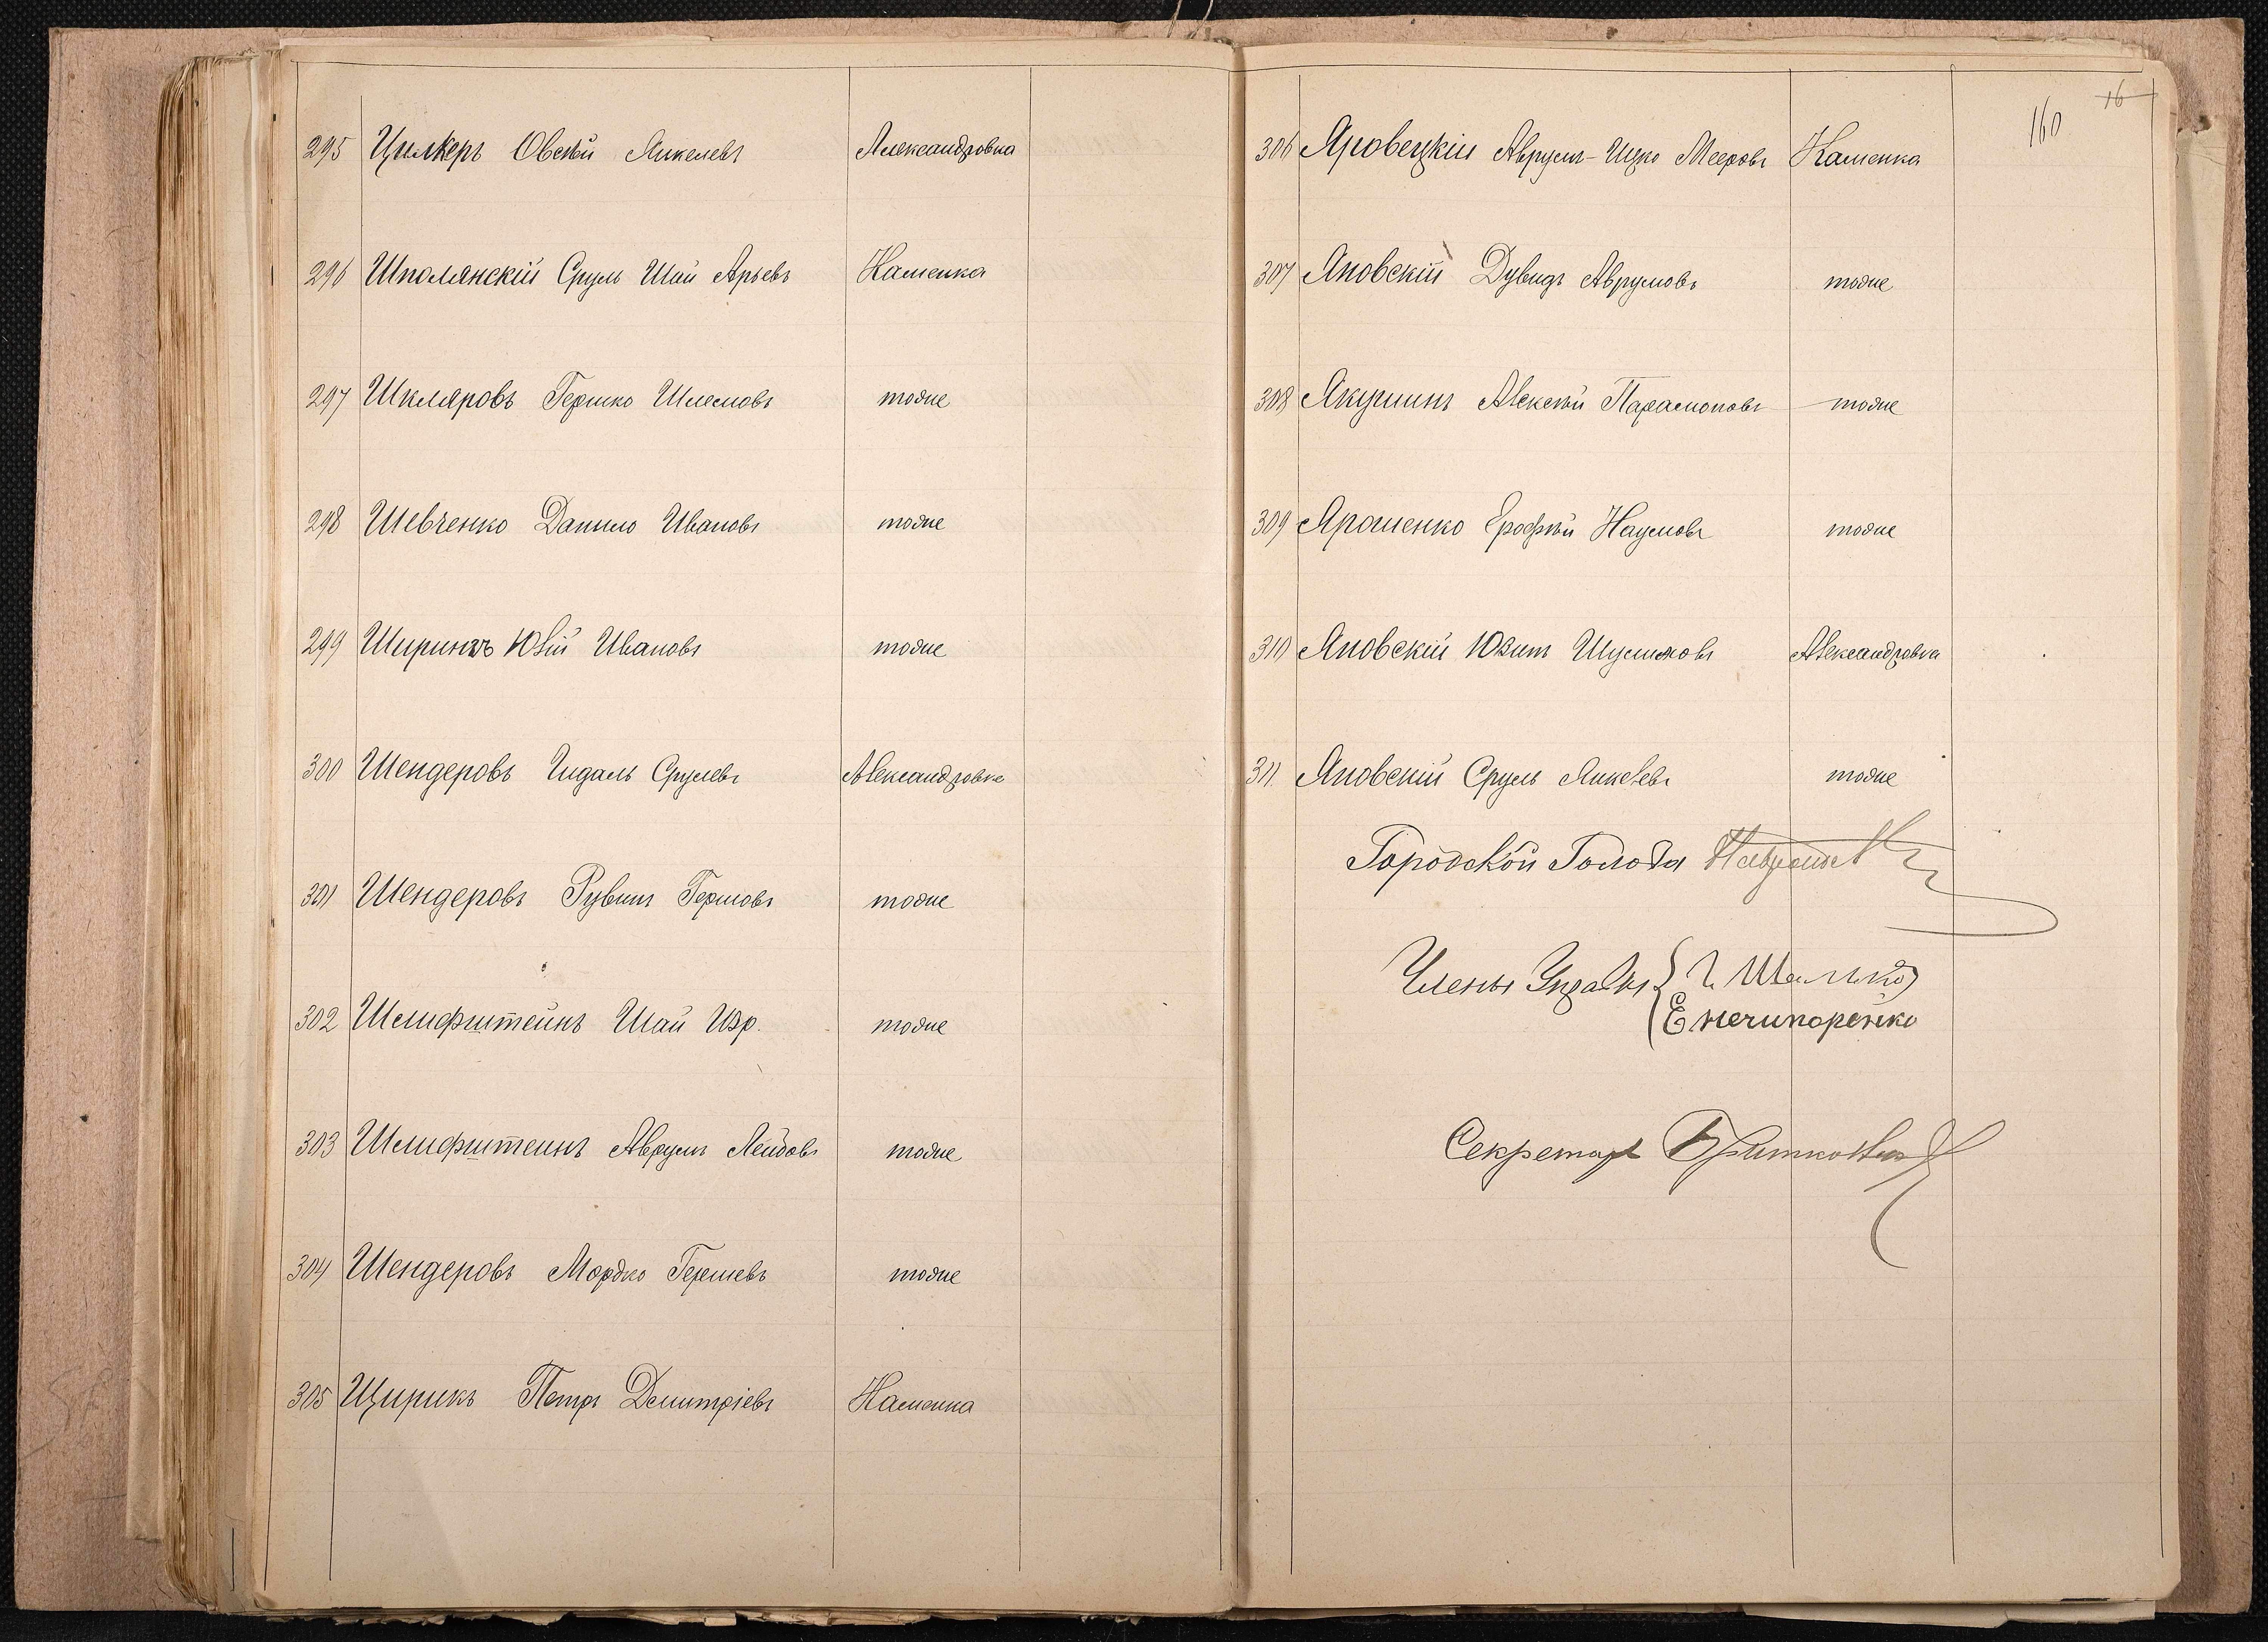 295 Цилкеръ Овсѣй Янкелевъ Александровка
296 Шполянскій Сруль Шай Арьевъ Каменка
297 Шкляровъ Гершко Шлемовъ тоже
298 Шевченко Данило Ивановъ тоже
299 Ширинъ Ивановъ тоже
300 Шендеровъ Гидаль Срулевъ Александровка
301 Шендеровъ Рувинъ Гершовъ тоже
302 Шлифштейнъ Шай Изр. тоже
303 Шлифштейнъ Аврумъ Лейбовъ тоже
304 Шендеровъ Мордко Гершевъ тоже
305 Щирикъ Петръ Дмитріевъ Каменка
16
160
306 Яровецкій Аврумъ-Ицко Мееровъ Каменка
307 Яновскій Дувидъ Аврумовъ тоже
308 Якушинъ Алексѣй Парамоновъ тоже
309 Ярошенко Ерофѣй Наумовъ тоже
310 Яновскій Шулимовъ Александровка
311. Яновскій Сруль Янкелевъ тоже
Городской Голова
Члены Управы
Е Нечипоренко
Секретарь